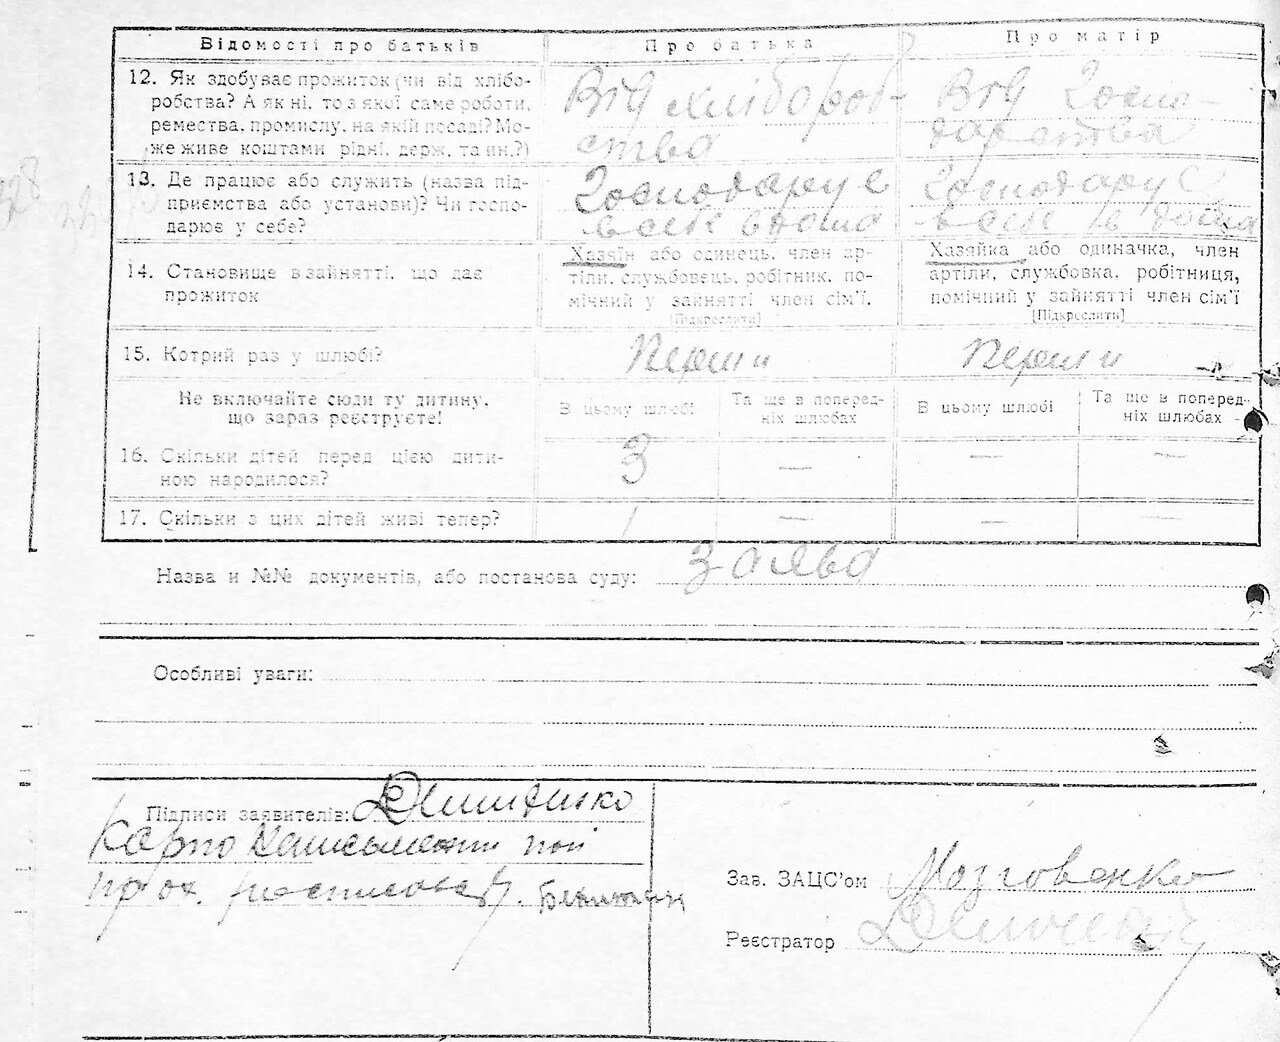 Відомості про батьків Про батька Про матір
12. Як здобуває прожиток (чи від хлібо-
робства? А як ні, то з якої саме роботи,
ремества, промислу, на якій посаді? Мо-
же живе коштами рідні, держ. та ин.?)
Від хлібороб-
ства
Від Госпо-
дарства
13. Де працює або служить (назва під-
приємства або установи)? Чи госпо-
дарює у себе?
Господарує
в себе вдома
Господарує
в себе вдома
14. Становище в зайнятті, що дає
прожиток
Хазяїн або одинець, член ар-
тіли, службовець, робітник, по-
мічний у зайнятті член сім'ї.
[Підкреслити]
Хазяйка або одиначка, член
артіли, службовка, робітниця,
помічний у зайнятті член сім'ї
[Підкреслити]
15. Котрий раз у шлюбі? Перши Перши
Не включайте сюди ту дитину,
що зараз реєструєте!
В цьому шлюбі
Та ще в поперед-
ніх шлюбах
В цьому шлюбі
Та ще в поперед-
ніх шлюбах
16. Скільки дітей перед цією дити-
ною народилося?
3 — — —
17. Скільки з цих дітей живі тепер? 1 — — —
Назва и №№ документів, або постанова суду: заява
Особливі уваги:
Підписи заявителів:
Карпо
прох.
Зав. ЗАЦС'ом Мозговенко
Реєстратор